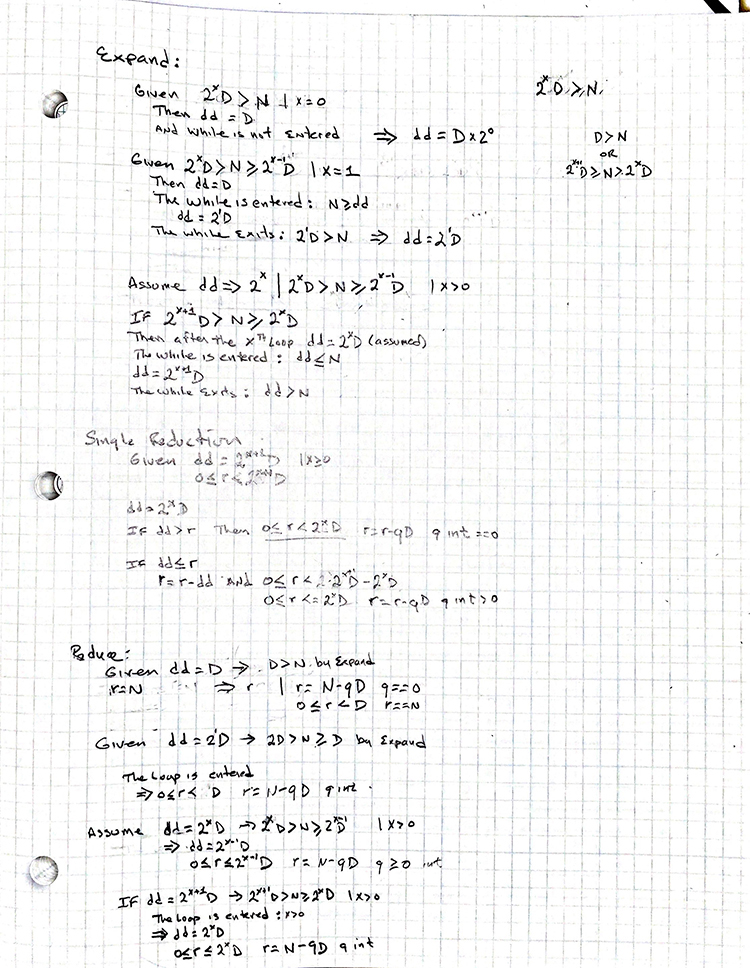 Expand:
Given 2^x D > N | x=0
Then dd = D
And while is not entered ⇒ dd = D x 2^0
2^x D ≥ N
D > N
OR
2^(x+1) D ≥ N > 2^x D
Given 2^x D > N ≥ 2^(x-1) D | x=1
Then dd = D
The while is entered: N ≥ dd
dd = 2^1 D
The while exits: 2^1 D > N ⇒ dd = 2^1 D
Assume dd ⇒ 2^x | 2^x D > N ≥ 2^(x-1) D | x>0
If 2^(x+1) D > N ≥ 2^x D
Then after the x^th loop dd = 2^x D (assumed)
The while is entered: dd ≤ N
dd = 2^(x+1) D
The while exits: dd > N
Single Reduction
Given dd = 2^(x+1) D | x≥0
0 ≤ r < D
dd = 2^x D
If dd > r Then 0 ≤ r < 2^x D r = r-qD q int == 0
If dd ≤ r
r = r-dd and 0 ≤ r < 2·2^x D - 2^x D
0 ≤ r <= 2^x D r = r-qD q int > 0
Reduce:
Given dd = D → D > N by Expand
r = N ⇒ r | r = N-qD q == 0
0 ≤ r < D r == N
Given dd = 2^1 D → 2D > N ≥ D by Expand
The Loop is entered
⇒ 0 ≤ r < D r = N-qD q int.
Assume dd = 2^x D → 2^x D > N ≥ 2^(x-1) D | x>0
⇒ dd = 2^(x-1) D
0 ≤ r ≤ 2^(x-1) D r = N-qD q ≥ 0 int
If dd = 2^(x+1) D → 2^(x+1) D > N ≥ 2^x D | x>0
The loop is entered: x>0
⇒ dd = 2^x D
0 ≤ r ≤ 2^x D r = N-qD q int